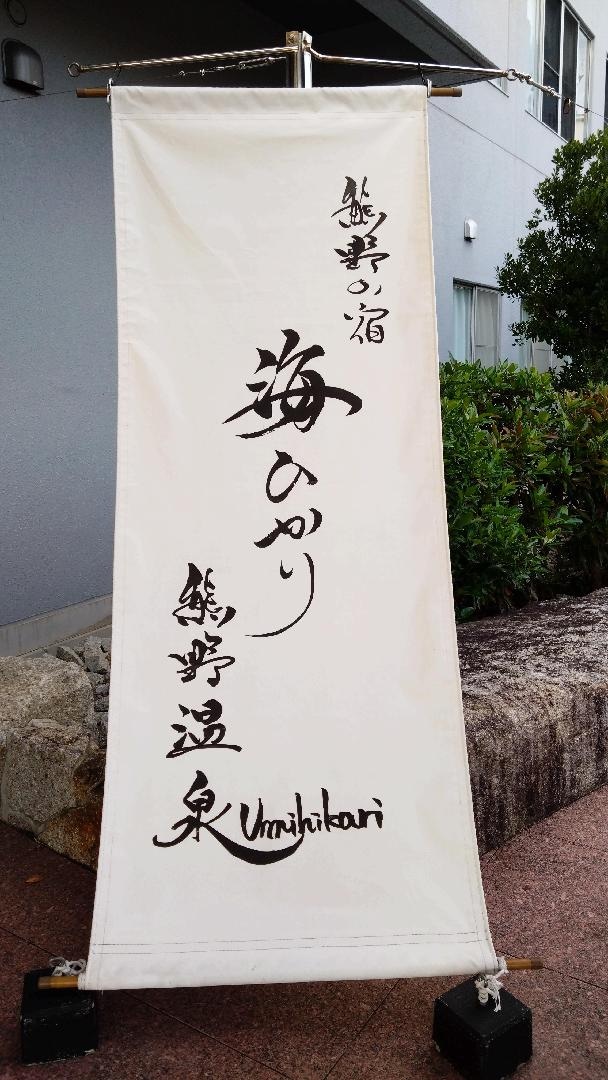 熊野の宿
海ひかり
熊野温泉
Umihikari